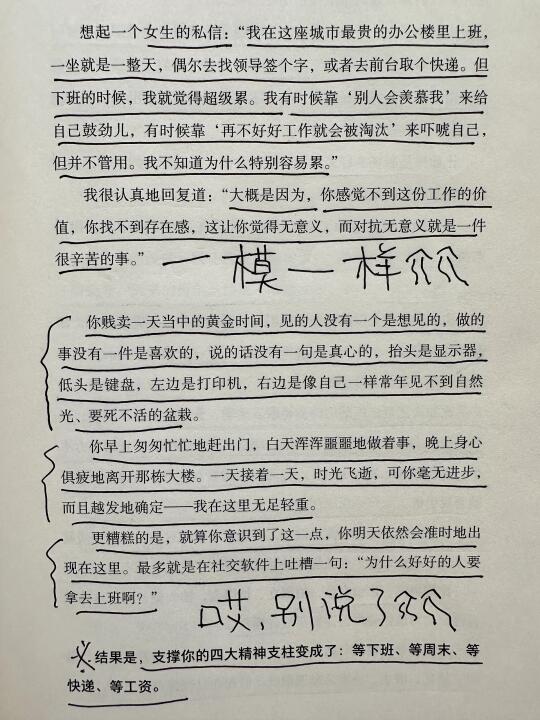 想起一个女生的私信：“我在这座城市最贵的办公楼里上班，
一坐就是一整天，偶尔去找领导签个字，或者去前台取个快递。但
下班的时候，我就觉得超级累。我有时候靠‘别人会羡慕我’来给
自己鼓劲儿，有时候靠‘再不好好工作就会被淘汰’来吓唬自己，
但并不管用。我不知道为什么特别容易累。”
我很认真地回复道：“大概是因为，你感觉不到这份工作的价
值，你找不到存在感，这让你觉得无意义，而对抗无意义就是一件
很辛苦的事。”
一模一样
你贱卖一天当中的黄金时间，见的人没有一个是想见的，做的
事没有一件是喜欢的，说的话没有一句是真心的，抬头是显示器，
低头是键盘，左边是打印机，右边是像自己一样常年见不到自然
光、要死不活的盆栽。
你早上匆匆忙忙地赶出门，白天浑浑噩噩地做着事，晚上身心
俱疲地离开那栋大楼。一天接着一天，时光飞逝，可你毫无进步，
而且越发地确定——我在这里无足轻重。
更糟糕的是，就算你意识到了这一点，你明天依然会准时地出
现在这里。最多就是在社交软件上吐槽一句：“为什么好好的人要
拿去上班啊？”
哎，别说了
结果是，支撑你的四大精神支柱变成了：等下班、等周末、等
快递、等工资。